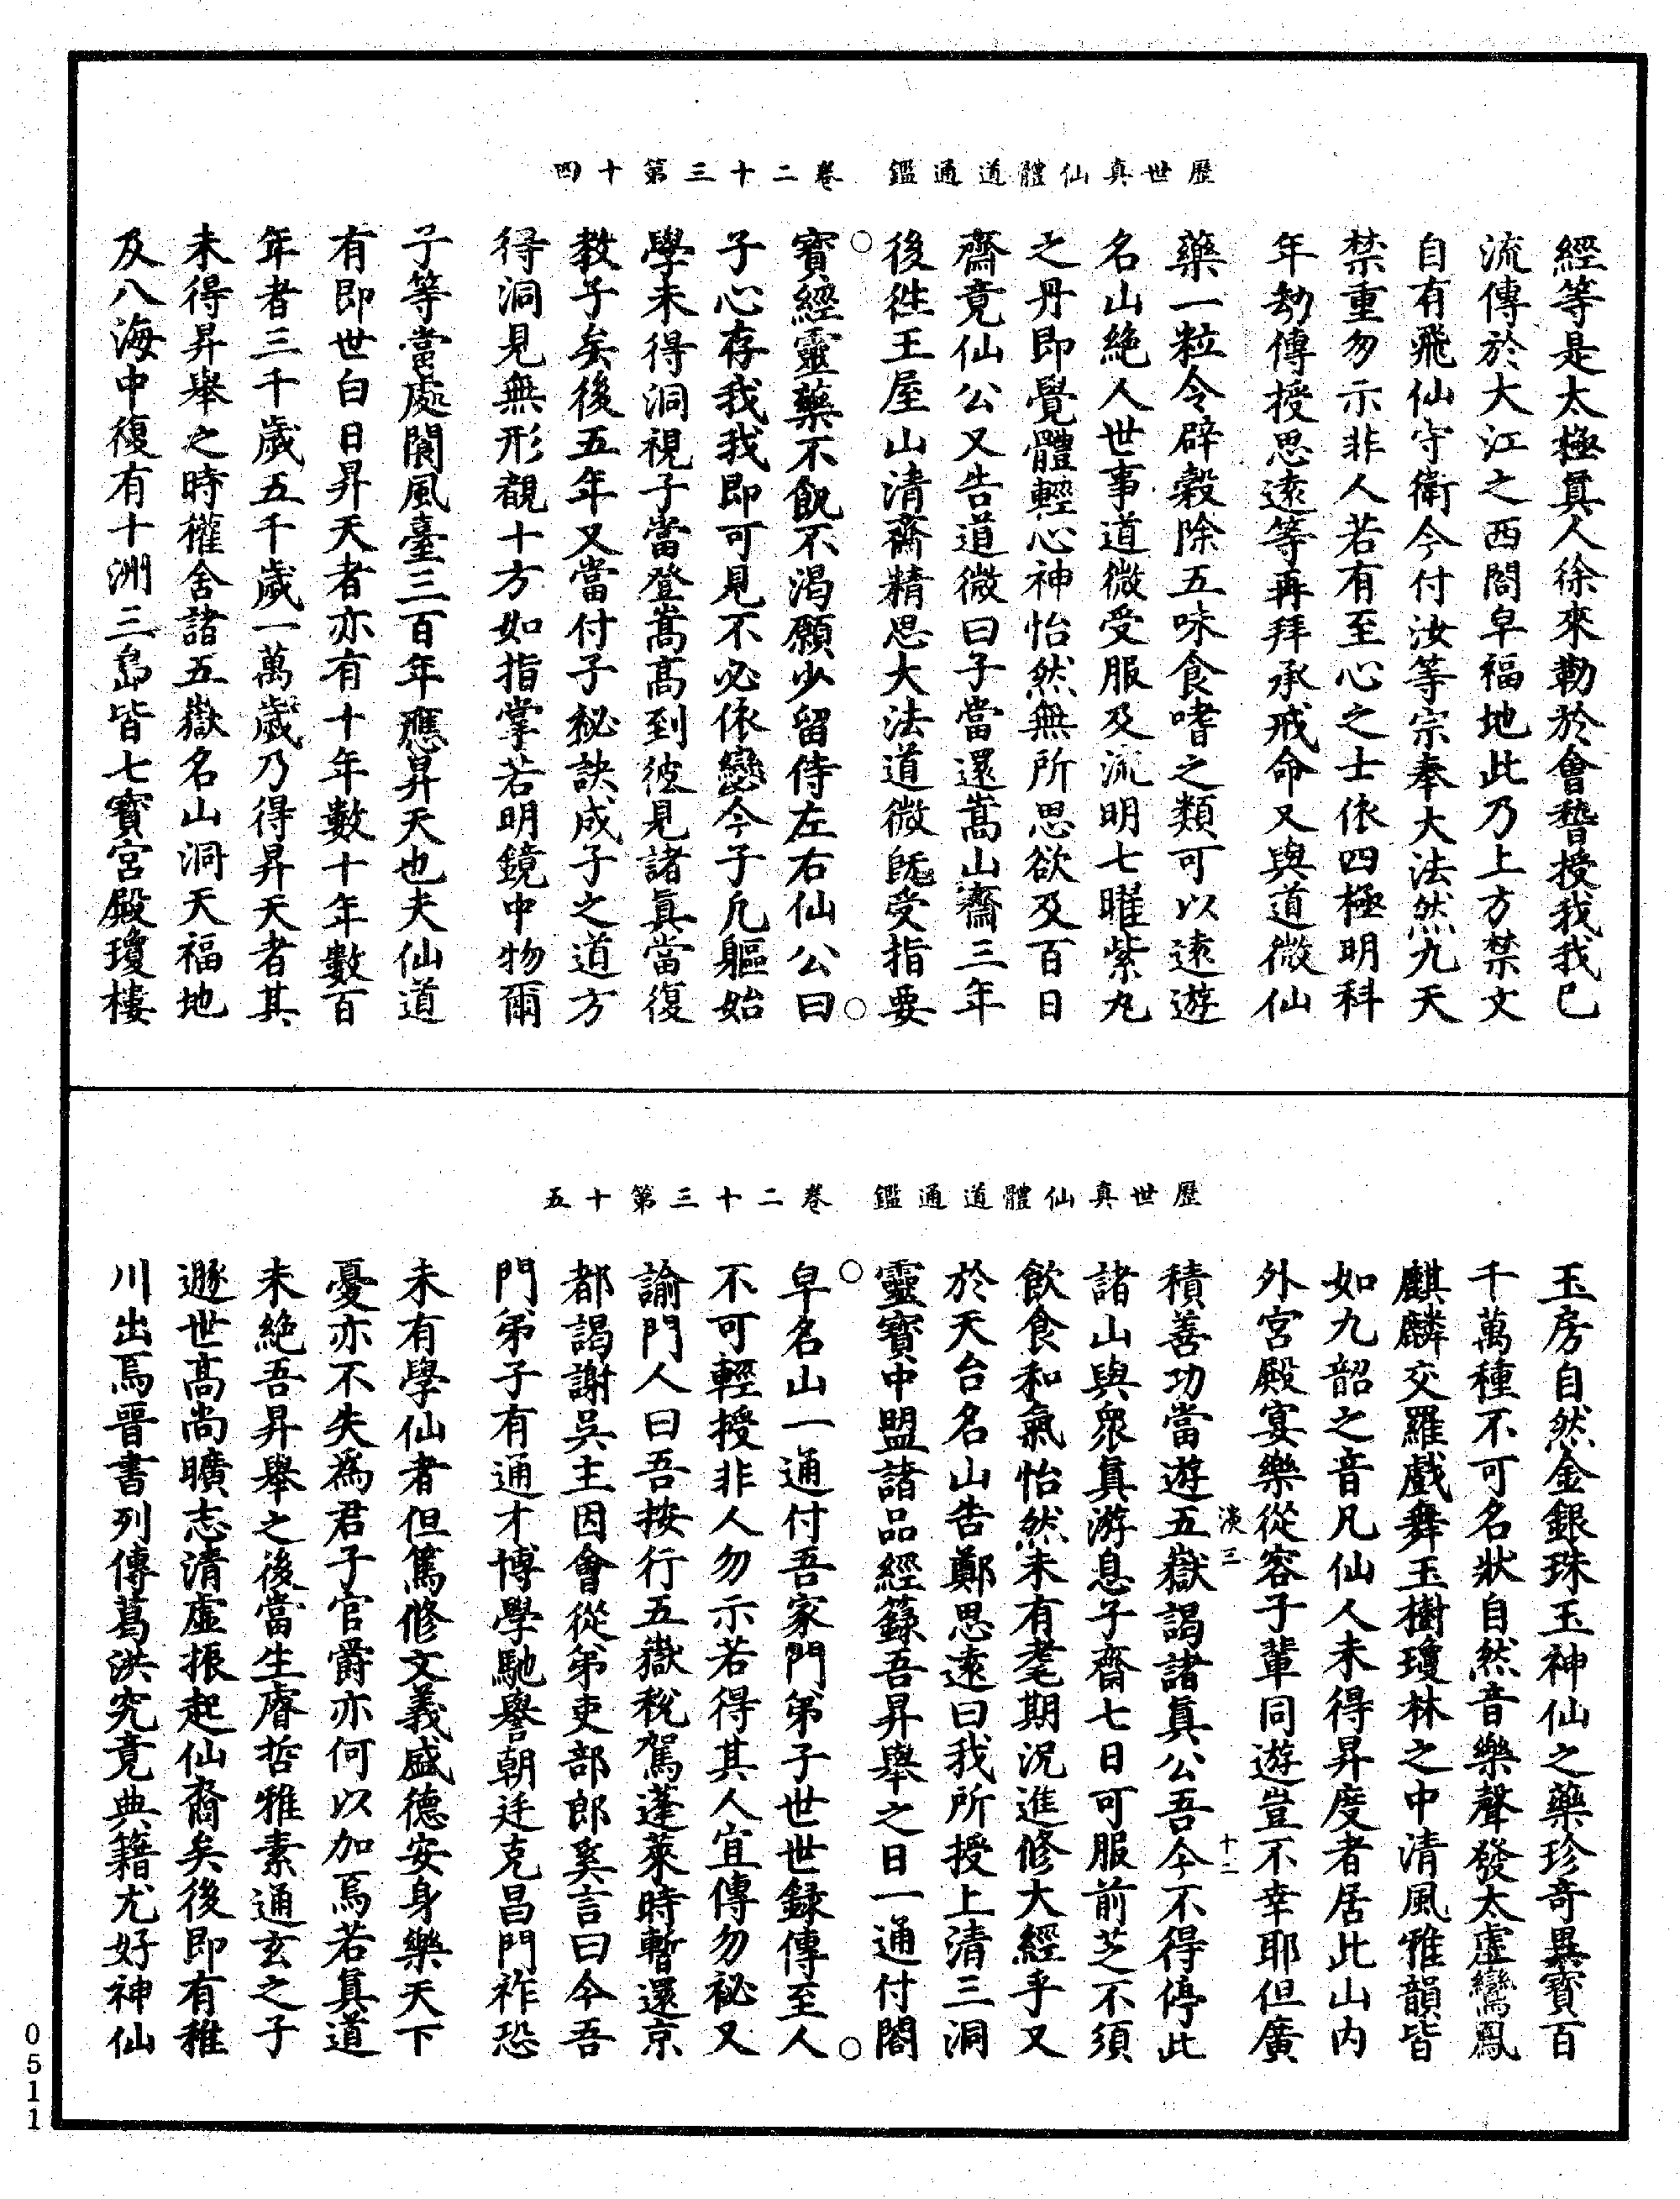 歷世真仙體道通鑑　卷二十三第十四
經等是太極真人徐來勒於會稽授我我已
流傳於大江之西閤皁福地此乃上方禁文
自有飛仙守衛今付汝等宗奉大法然九天
禁重勿示非人若有至心之士依四極明科
年劫傳授思遠等再拜承戒命又與道微仙
藥一粒令辟穀除五味食嗜之類可以遠遊
名山絕人世事道微受服及流明七曜紫丸
之丹即覺體輕心神怡然無所思欲及百日
齋竟仙公又告道微曰子當還嵩山齋三年
後徃王屋山清齋精思大法道微旣受指要
寶經靈藥不飢不渴願少留侍左右仙公曰
子心存我我即可見不必依戀今子凡軀始
學未得洞視子當登嵩高到彼見諸真當復
教子矣後五年又當付子祕訣成子之道方
得洞見無形覩十方如指掌若明鏡中物爾
子等當處閬風臺三百年應昇天也夫仙道
有即世白日昇天者亦有十年數十年數百
年者三千歲五千歲一萬歲乃得昇天者其
未得昇舉之時權舍諸五嶽名山洞天福地
及八海中復有十洲三島皆七寶宮殿瓊樓
歷世真仙體道通鑑　卷二十三第十五
玉房自然金銀珠玉神仙之藥珍奇異寶百
千萬種不可名狀自然音樂聲發太虛鸞鳳
麒麟交羅戲舞玉樹瓊林之中清風雅韻皆
如九韶之音凡仙人未得昇度者居此山內
外宮殿宴樂從容子輩同遊豈不幸耶但廣
淡三　十二
積善功當遊五嶽謁諸真公吾今不得停此
諸山與衆真游息子齋七日可服前芝不須
飲食和氣怡然未有耄期況進修大經乎又
於天台名山告鄭思遠曰我所授上清三洞
靈寶中盟諸品經籙吾昇舉之日一通付閤
皁名山一通付吾家門弟子世世録傳至人
不可輕授非人勿示若得其人宜傳勿祕又
諭門人曰吾按行五嶽稅駕蓬萊時暫還京
都謁謝吳主因會從弟吏部郎奚言曰今吾
門弟子有通才博學馳譽朝廷克昌門祚恐
未有學仙者但篤修文義盛德安身樂天下
憂亦不失爲君子官爵亦何以加焉若真道
未絕吾昇舉之後當生睿哲雅素通玄之子
遯世高尚曠志清虛振起仙裔矣後即有稚
川出焉晉書列傳葛洪究竟典籍尤好神仙
0511